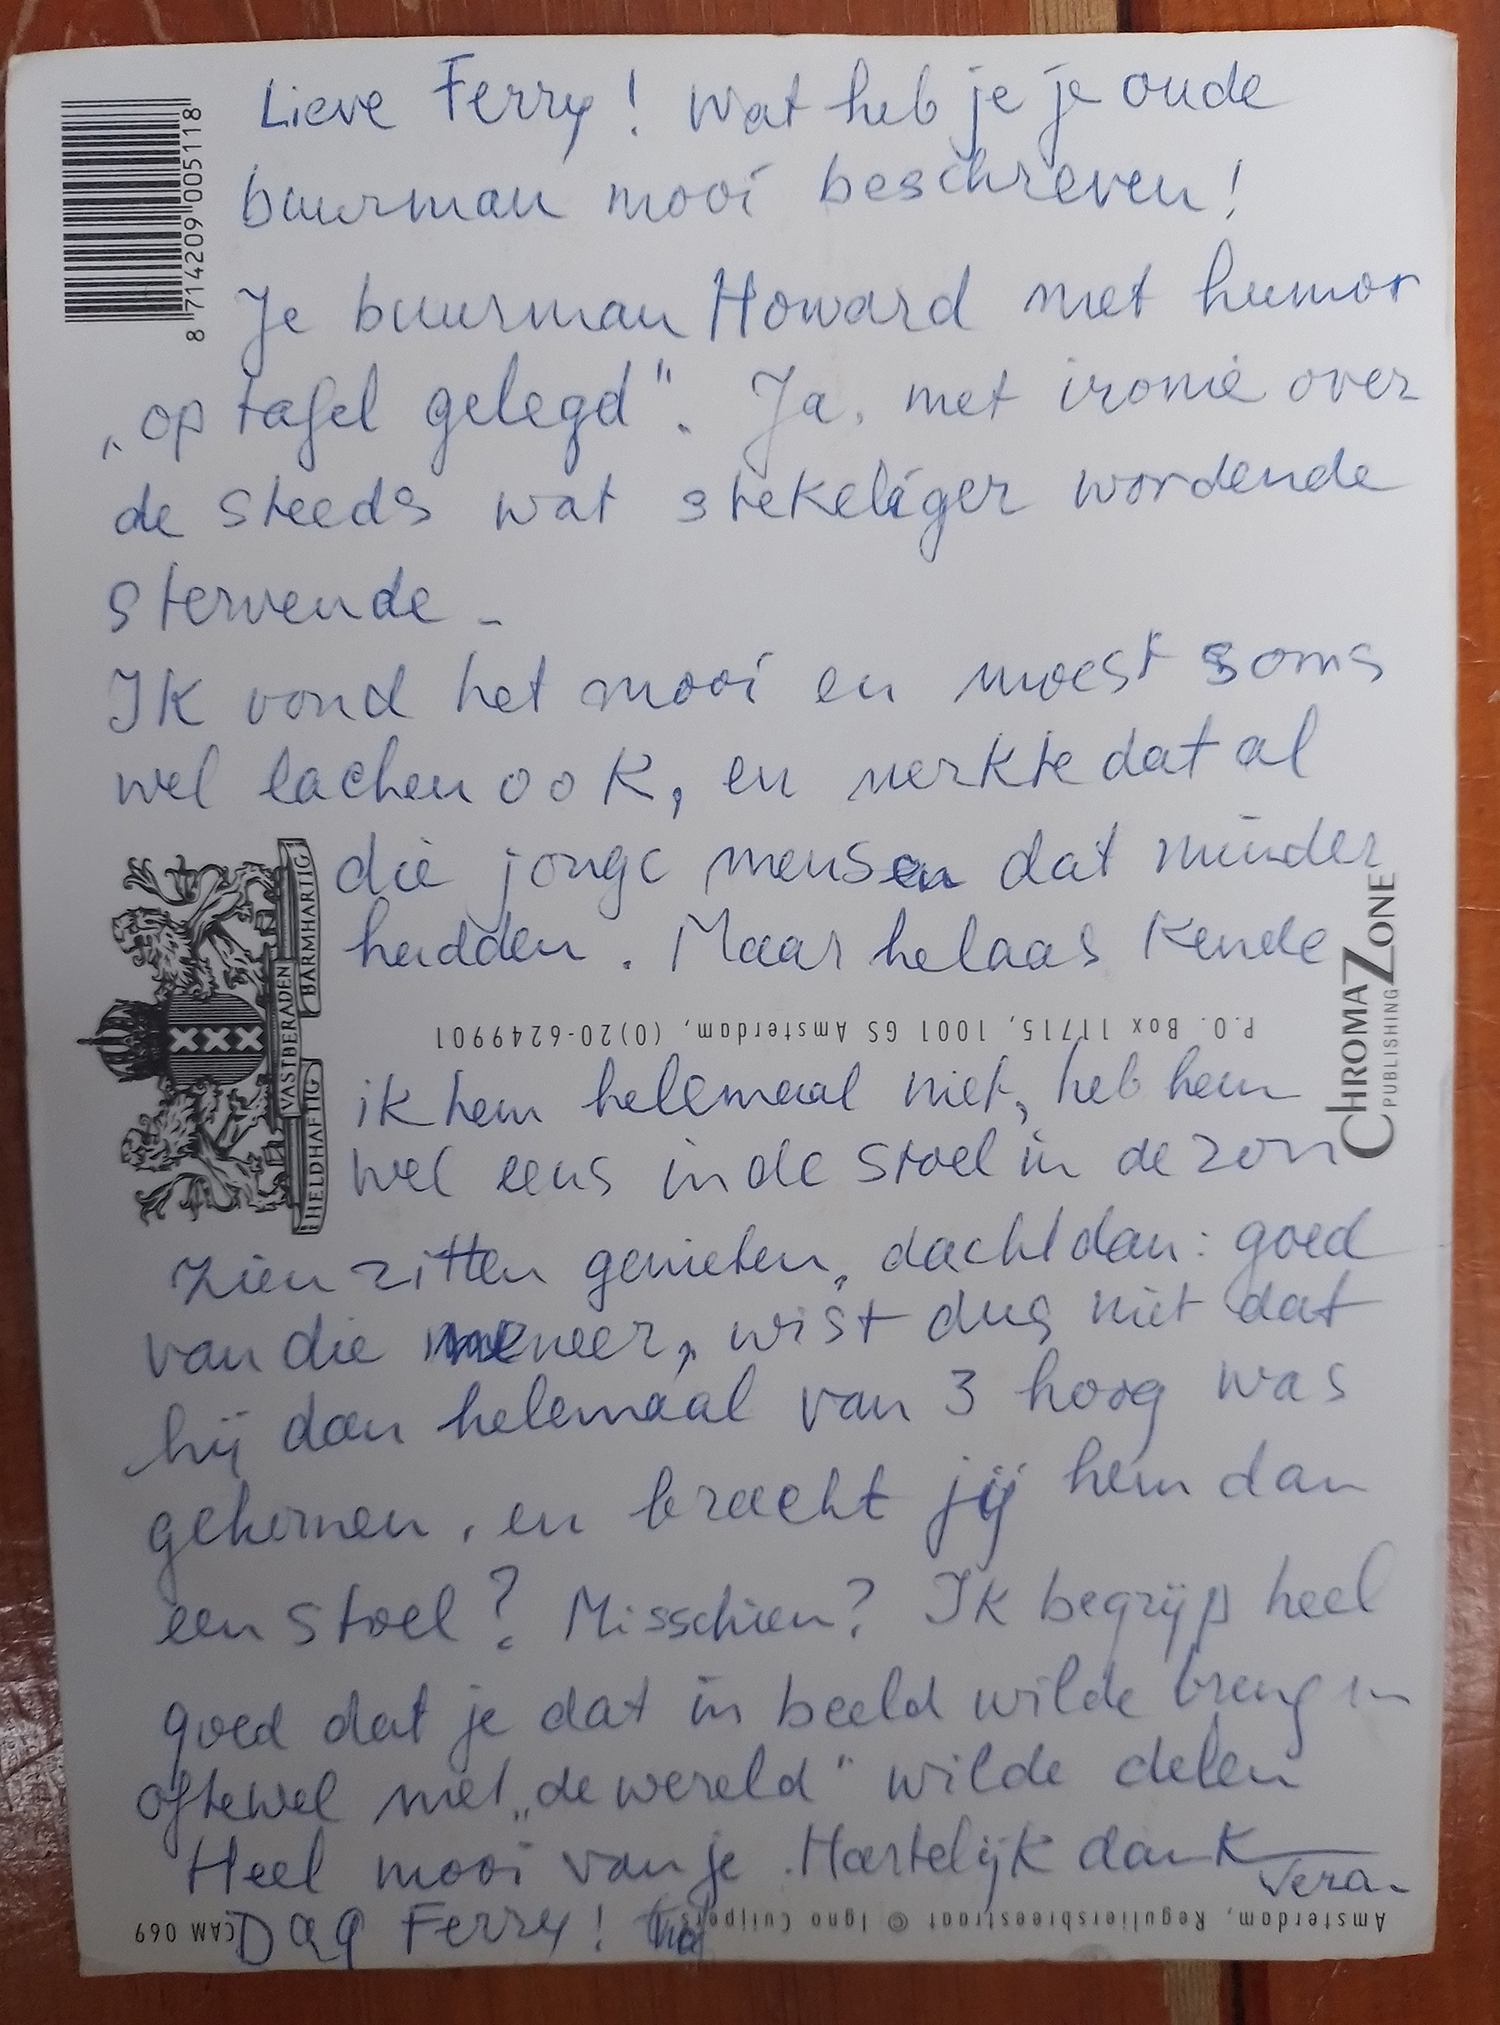 Lieve Ferry! Wat heb je je oude
buurman mooi beschreven!
Je buurman Howard met humor
„op tafel gelegd". Ja, met ironie over
de steeds wat stekeliger wordende
stervende -
Ik vond het mooi en moest soms
wel lachen ook, en merkte dat al
die jonge mensen dat minder
hadden. Maar helaas kende
ik hem helemaal niet, heb hem
wel eens in de stoel in de zon
zien zitten genieten, dacht dan: goed
van die meneer, wist dus niet dat
hij dan helemaal van 3 hoog was
gekomen, en bracht jij hem dan
een stoel? Misschien? Ik begrijp heel
goed dat je dat in beeld wilde brengen
oftewel met „de wereld" wilde delen
Heel mooi van je. Hartelijk dank
Vera.
Dag Ferry!
8 714209 005118
HELDHAFTIG VASTBERADEN BARMHARTIG
P.O. Box 11715, 1001 GS Amsterdam, (0)20-6249901
CHROMAZONE
PUBLISHING
Amsterdam, Reguliersbreestraat © Igno Cuijpers
CAM 069